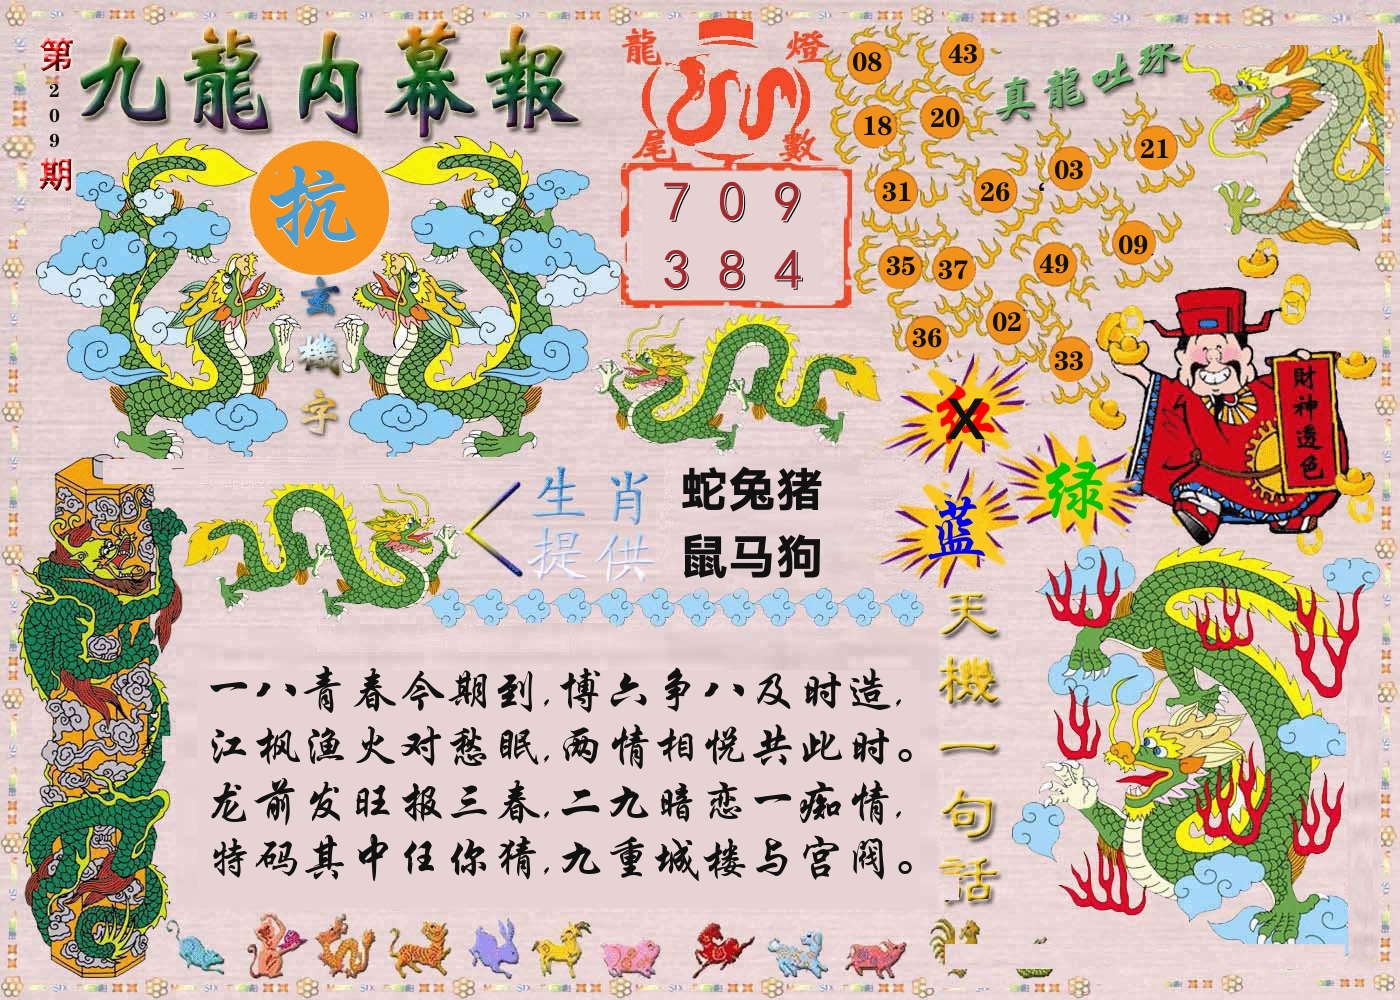 第209期
九龍内幕報
抗
玄機字
龍燈
尾數
7 0 9
3 8 4
真龍吐珠
08 43
18 20
31 26 03 21
35 37 49 09
36 02 33
財神透色
红 X
绿
蓝
生肖
提供
蛇兔猪
鼠马狗
天機一句話
一八青春今期到,博六争八及时造,
江枫渔火对愁眠,两情相悦共此时。
龙前发旺报三春,二九暗恋一痴情,
特码其中任你猜,九重城楼与宫阙。